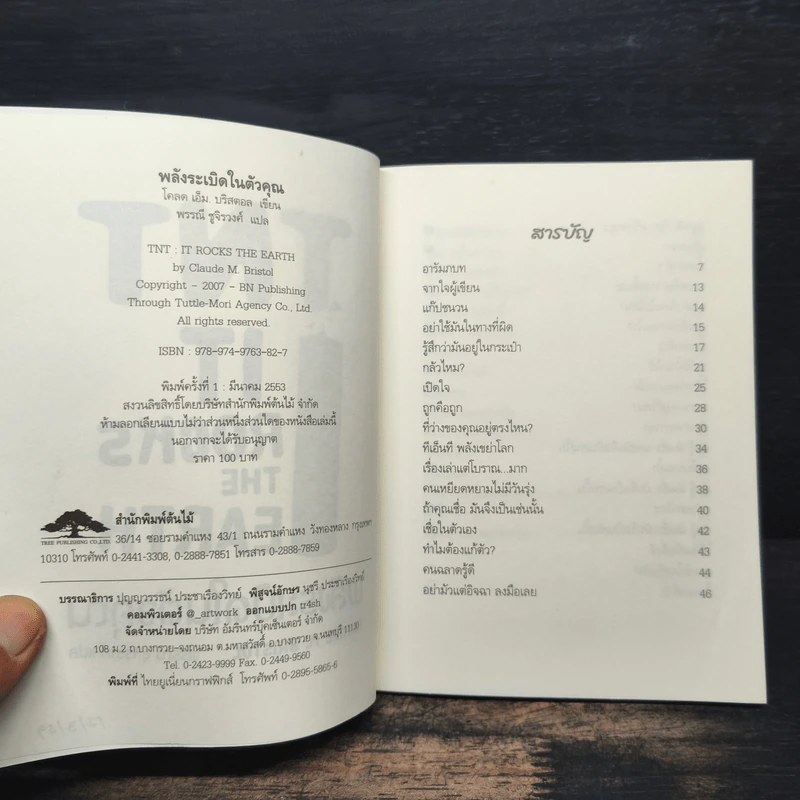 พลังระเบิดในตัวคุณ
โคลด เอ็ม. บริสตอล เขียน
พรรณี ชูจิรวงศ์ แปล
TNT : IT ROCKS THE EARTH
by Claude M. Bristol
Copyright - 2007 - BN Publishing
Through Tuttle-Mori Agency Co., Ltd.
All rights reserved.
ISBN : 978-974-9763-82-7
พิมพ์ครั้งที่ 1 : มีนาคม 2553
สงวนลิขสิทธิ์โดยบริษัทสำนักพิมพ์ต้นไม้ จำกัด
ห้ามลอกเลียนแบบไม่ว่าส่วนหนึ่งส่วนใดของหนังสือเล่มนี้
นอกจากจะได้รับอนุญาต
ราคา 100 บาท
TREE PUBLISHING CO.,LTD.
สำนักพิมพ์ต้นไม้
36/14 ซอยรามคำแหง 43/1 ถนนรามคำแหง วังทองหลาง กรุงเทพฯ
10310 โทรศัพท์ 0-2441-3308, 0-2888-7851 โทรสาร 0-2888-7859
บรรณาธิการ ปุญญวรรธน์ ประชาเรืองวิทย์ พิสูจน์อักษร นุชรี ประชาเรืองวิทย์
คอมพิวเตอร์ @_artwork ออกแบบปก tr4sh
จัดจำหน่ายโดย บริษัท อัมรินทร์บุ๊คเซ็นเตอร์ จำกัด
108 ม.2 ถ.บางกรวย-จงถนอม ต.มหาสวัสดิ์ อ.บางกรวย จ.นนทบุรี 11130
Tel. 0-2423-9999 Fax. 0-2449-9560
พิมพ์ที่ ไทยยูเนี่ยนกราฟฟิกส์ โทรศัพท์ 0-2895-5865-6
สารบัญ
อารัมภบท 7
จากใจผู้เขียน 13
แก๊ปชนวน 14
อย่าใช้มันในทางที่ผิด 15
รู้สึกว่ามันอยู่ในกระเป๋า 17
กลัวไหม? 21
เปิดใจ 25
ถูกคือถูก 28
ที่ว่างของคุณอยู่ตรงไหน? 30
ทีเอ็นที พลังเขย่าโลก 34
เรื่องเล่าแต่โบราณ...มาก 36
คนเหยียดหยามไม่มีวันรุ่ง 38
ถ้าคุณเชื่อ มันจึงเป็นเช่นนั้น 40
เชื่อในตัวเอง 42
ทำไมต้องแก้ตัว? 43
คนฉลาดรู้ดี 44
อย่ามัวแต่อิจฉา ลงมือเลย 46